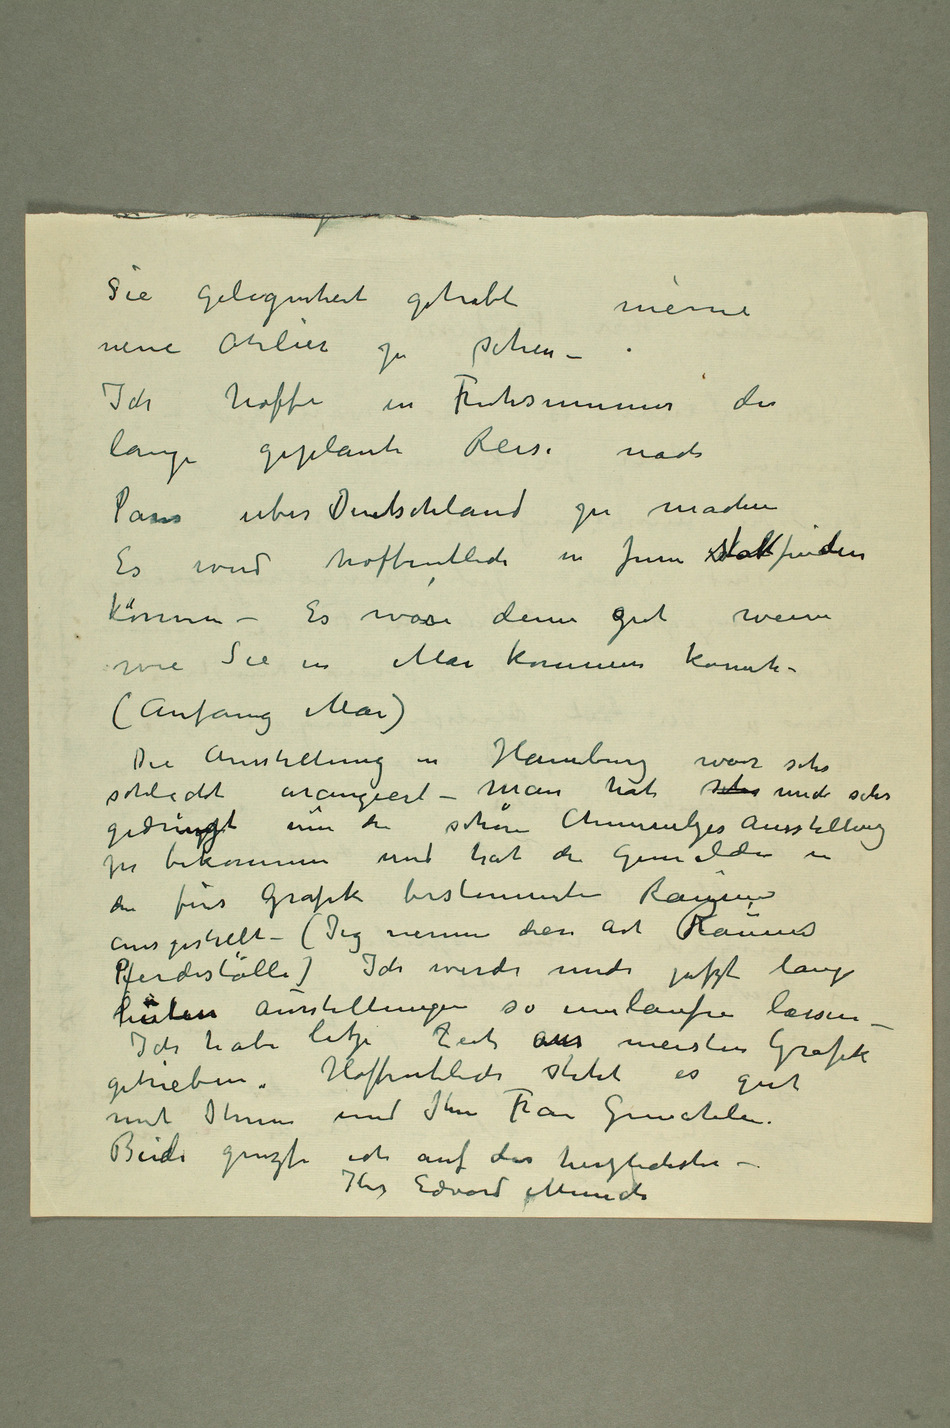 Sie gelegenheit gehabt meine
neue Atelier zu sehen –
Ich hoffe in Fruhsummer die
lange geplante Reise nach
Paris uber Deutschland zu machen
Es wird hoffentlich in Juni stattfinden
können – Es wäre denn gut wenn
wie Sie in Mai kommen konnte –
(Anfang Mai)
Die Ausstellung in Hamburg war sehr
schlecht arangiert – Man hat sehr mich sehr
gedringt um die schöne Chemnitzer Ausstellung
zu bekommen und hat die Gemälde in
die fürs Grafik bestimmte Raüme
ausgestellt – (Jeg nenne diese Art Raüme
Pferdeställe) Ich werde mich jetzt lange
hüten Ausstellungen so umlaufen lassen –
Ich habe letze Zeit aus meisten Grafik
getrieben. Hoffentlich steht es gut
mit Ihnen und Ihre Frau Gemahlin.
Beide grüzse ich auf das herzlichste –
Ihr Edvard Munch